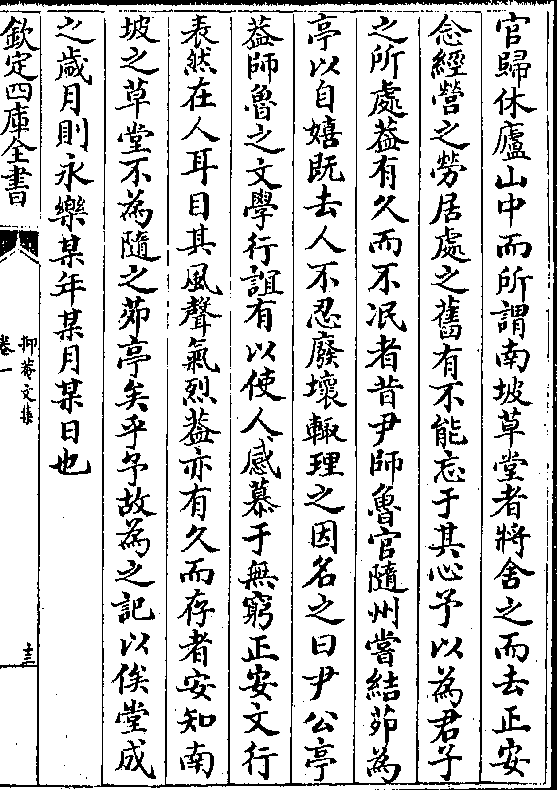 官歸休廬山中而所謂南坡草堂者將舍之而去正安
念經營之勞居處之舊有不能忘于其心予以為君子
之所處葢有久而不泯者昔尹師魯官隨州嘗結茆為
亭以自嬉既去人不忍廢壞輙理之因名之曰尹公亭
葢師魯之文學行誼有以使人感慕于無窮正安文行
表然在人耳目其風聲氣烈葢亦有久而存者安知南
坡之草堂不為隨之茆亭矣乎予故為之記以俟堂成
之歲月則永樂某年某月某日也
欽定四庫全書
抑菴文集
卷一
十三